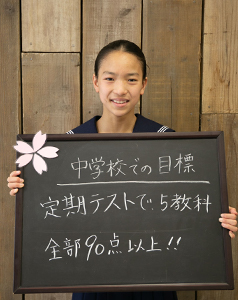 中学校での目標
定期テストで5教科
全部90点以上!!